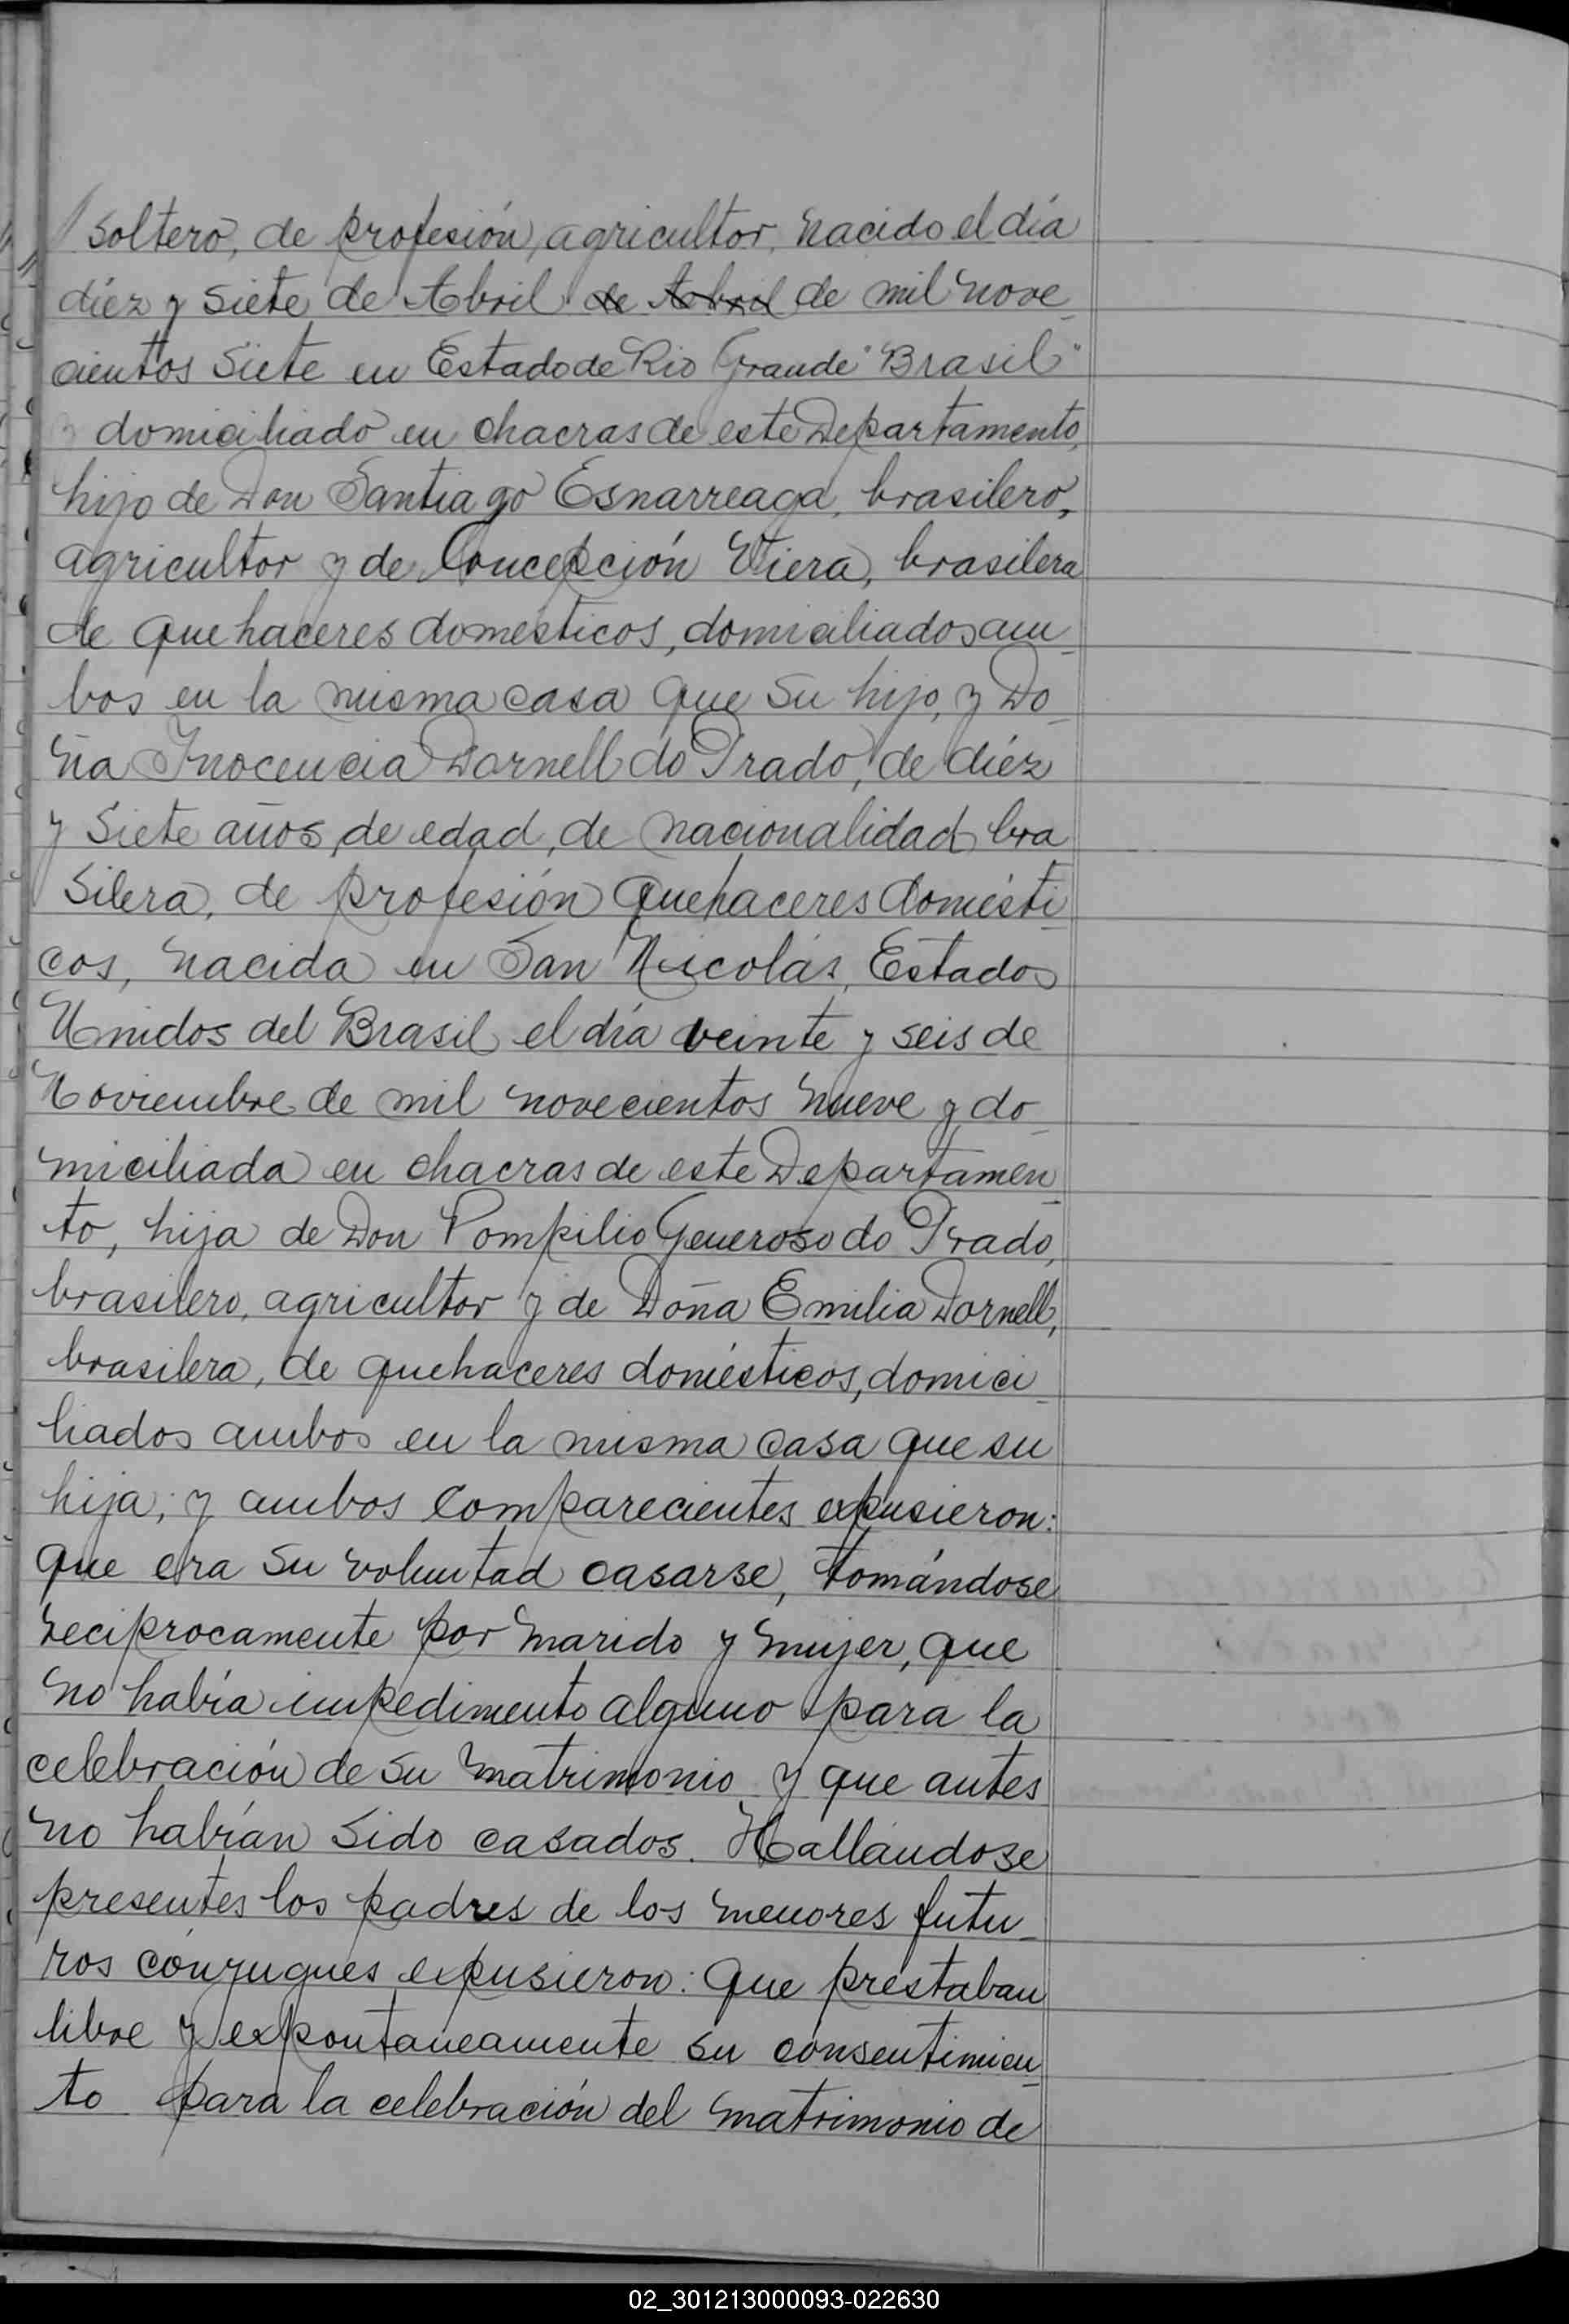 Soltero, de profesión agricultor, nacido el día
diéz y siete de Abril de Abril de mil nove_
cientos siete en Estado de Rio Grande "Brasil"
domiciliado en chacras de este Departamento,
hijo de Don Santiago Esnarreaga, brasilero,
agricultor y de Concepción Viera, brasilera
de quehaceres domésticos, domiciliados am_
bos en la misma casa que su hijo, y Do_
ña Inocencia Dornell do Prado, de diéz
y siete años de edad, de nacionalidad bra
silera, de profesión quehaceres domésti_
cos, nacida en San Nicolás, Estados
Unidos del Brasil el día veinte y seis de
Noviembre de mil novecientos nueve y do_
miciliada en chacras de este Departamen_
to, hija de Don Pompilio Generoso do Prado,
brasilero, agricultor y de Doña Emilia Dornell,
brasilera, de quehaceres domésticos, domici_
liados ambos en la misma casa que su
hija; y ambos comparecientes expusieron:
que era su voluntad casarse, tomándose
reciprocamente por marido y mujer, que
no había impedimento alguno para la
celebración de su matrimonio y que antes
no habían sido casados. Hallándose
presentes los padres de los menores futu_
ros cónyugues expusieron: que prestaban
libre y expontaneamente su consentimien_
to para la celebración del matrimonio de
02_301213000093-022630